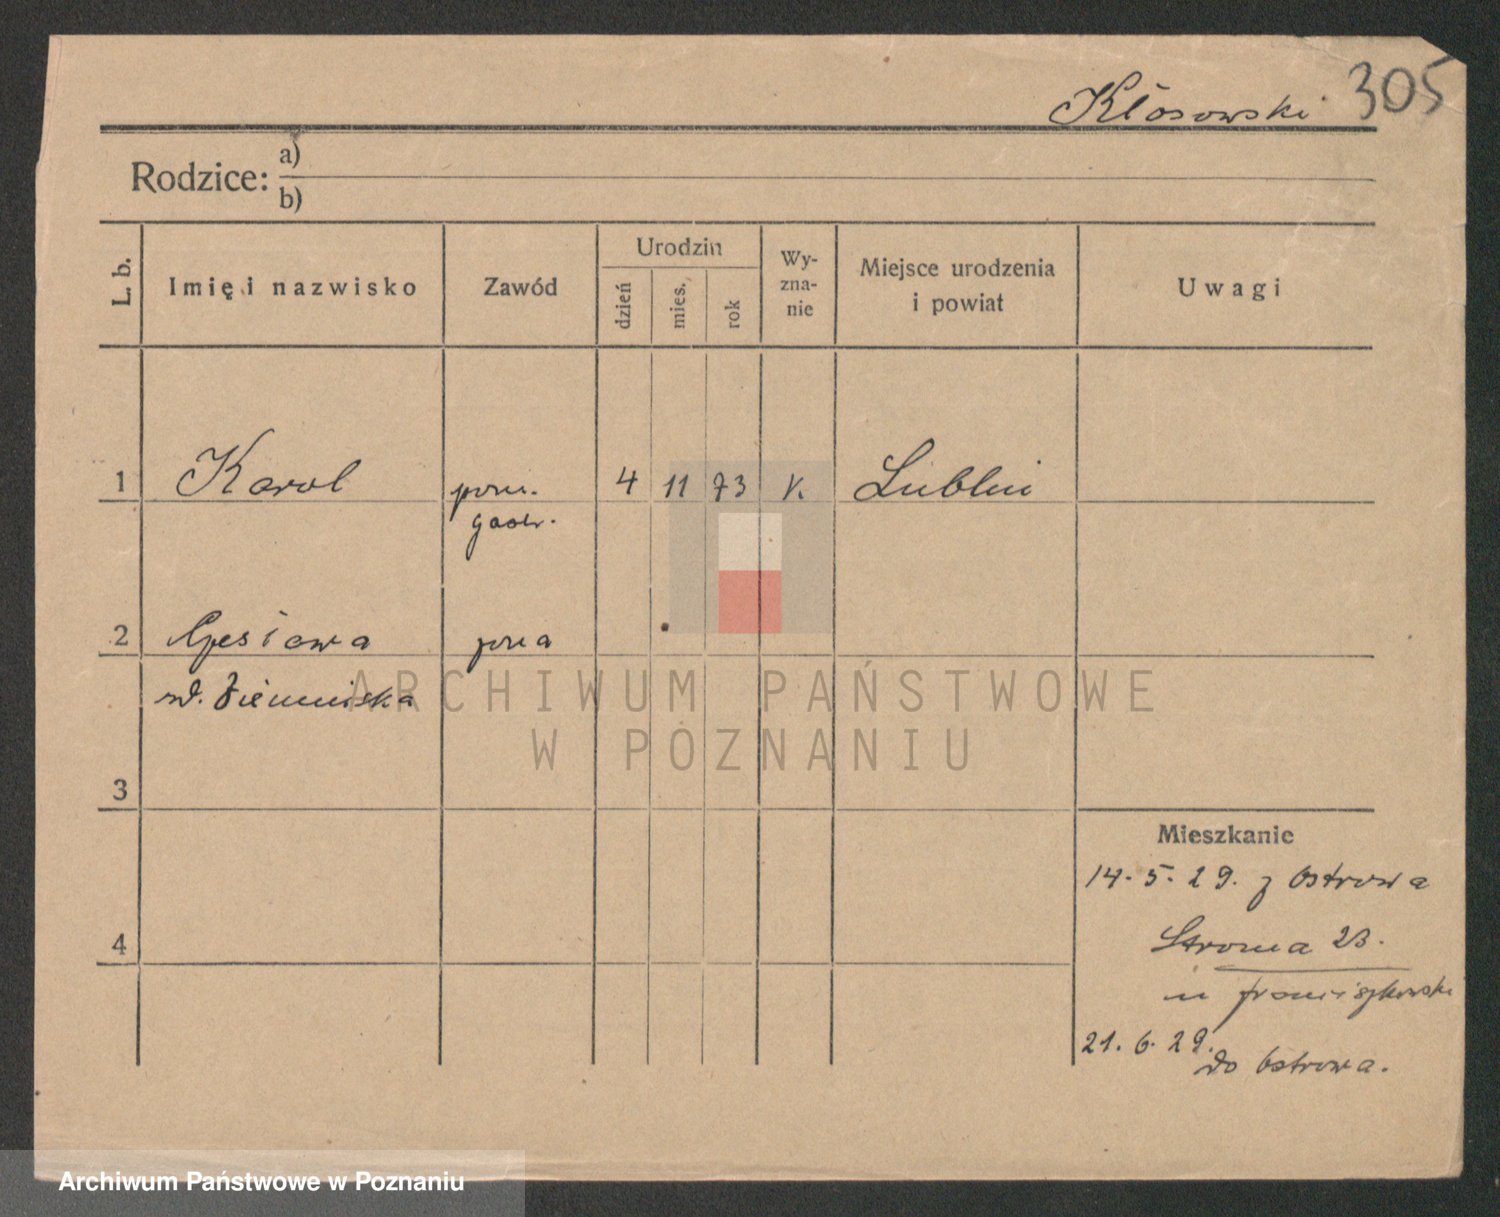 Kłosowski 305
Rodzice: a)
b)
L. b.
Imię i nazwisko
Zawód
Urodzin
dzień
mies.
rok
Wy-
zna-
nie
Miejsce urodzenia
i powiat
Uwagi
1 Karol pom. 4 11 73 k. Lublin
2
3
4
Mieszkanie
14. 5. 29. z Ostrowa
Stroma 23.
21. 6. 29.
do Ostrowa.
ARCHIWUM PAŃSTWOWE
W POZNANIU
Archiwum Państwowe w Poznaniu